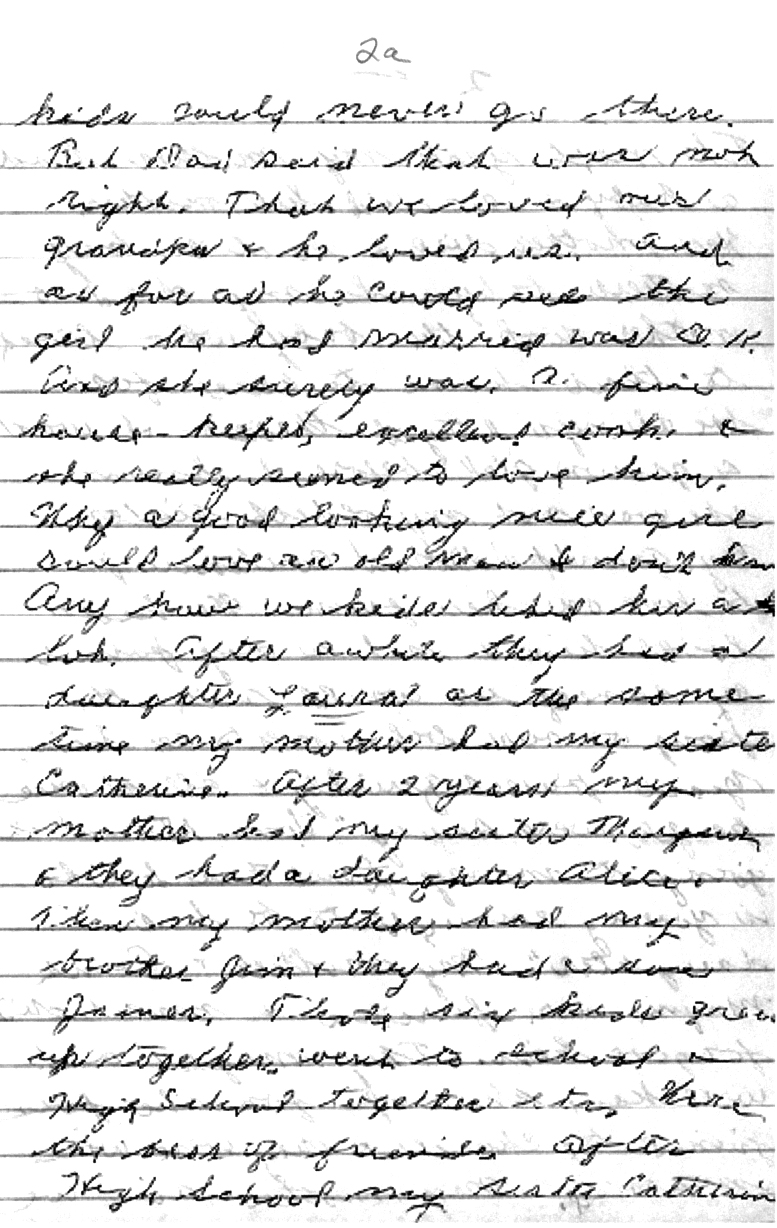 2a
kids could never go there.
But Dad said that was not
right. That we loved our
grandpa & he loved us. And
as far as he could see the
girl he had married was O.K.
And she surely was. A fine
house-keeper, excellent cook &
she really seemed to love him.
Why a good looking nice girl
could love an old man I don't
Any how we kids liked her a
lot. After awhile they had a
daughter Laura at the same
time my mother had my siste
Catherine. After 2 years my
mother had my sister
& they had a daughter Alice.
Then my mother had my
brother Jim & they had a son
James. Those six kids grew
up together, went to school &
High School together etc. Were
the best of friends. After
High School my sister Catherin